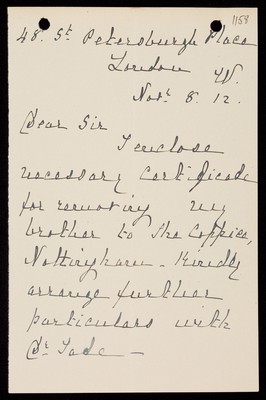 1158
48. St. Petersburgh Place
London
W.
Novr. 8. 12.
Dear Sir
I enclose
necessary Certificate
for removing my
brother to The Coppice,
Nottingham - Kindly
arrange further
particulars with
Dr. Tate —